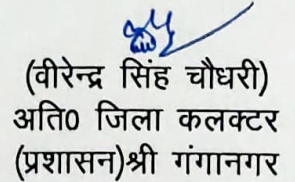 (वीरेन्द्र सिंह चौधरी)
अति० जिला कलक्टर
(प्रशासन)श्री गंगानगर